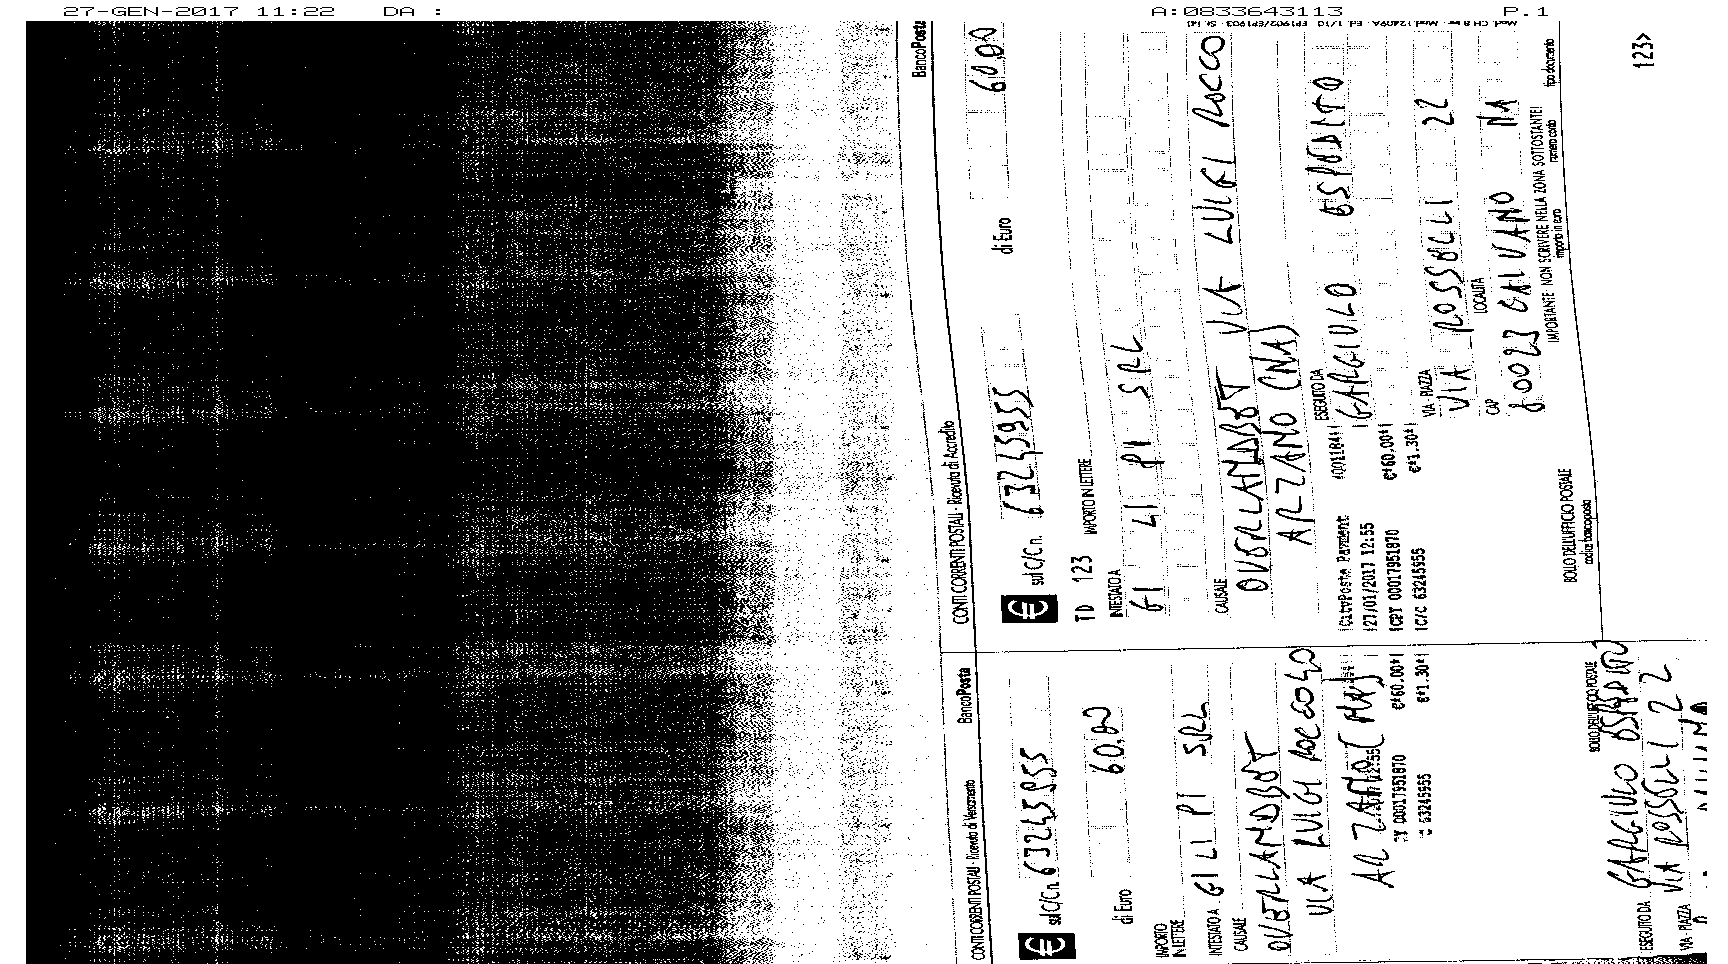 27-GEN-2017 11:22 DA : A:0833643113 P.1
CONTI CORRENTI POSTALI - Ricevuta di Versamento BancoPosta
€ sul C/C n. 63245955
di Euro 60,00
IMPORTO IN LETTERE
INTESTATO A GI LI PI SRL
CAUSALE
OVERLANDBOT
VIA LUIGI ROCCO 40
ARZANO (NA)
€*60.00*
C/C 63245955 €*1.30*
BOLLO DELL'UFFICIO POSTALE
ESEGUITO DA GARGIULO ESPEDITO
VIA - PIAZZA VIA ROSSELLI 22
CONTI CORRENTI POSTALI - Ricevuta di Accredito BancoPosta
€ sul C/C n. 63245955 di Euro 60,00
TD 123 IMPORTO IN LETTERE
INTESTATO A
GI LI PI SRL
CAUSALE
OVERLANDBOT VIA LUIGI ROCCO
ARZANO (NA)
27/01/2017 12:55
€*60.00*
C/C 63245955 €*1.30*
ESEGUITO DA
GARGIULO ESPEDITO
VIA - PIAZZA
VIA ROSSELLI 22
CAP LOCALITÀ
80023 CAIVANO NA
BOLLO DELL'UFFICIO POSTALE
codice bancoposta
IMPORTANTE: NON SCRIVERE NELLA ZONA SOTTOSTANTE!
importo in euro numero conto tipo documento
123>